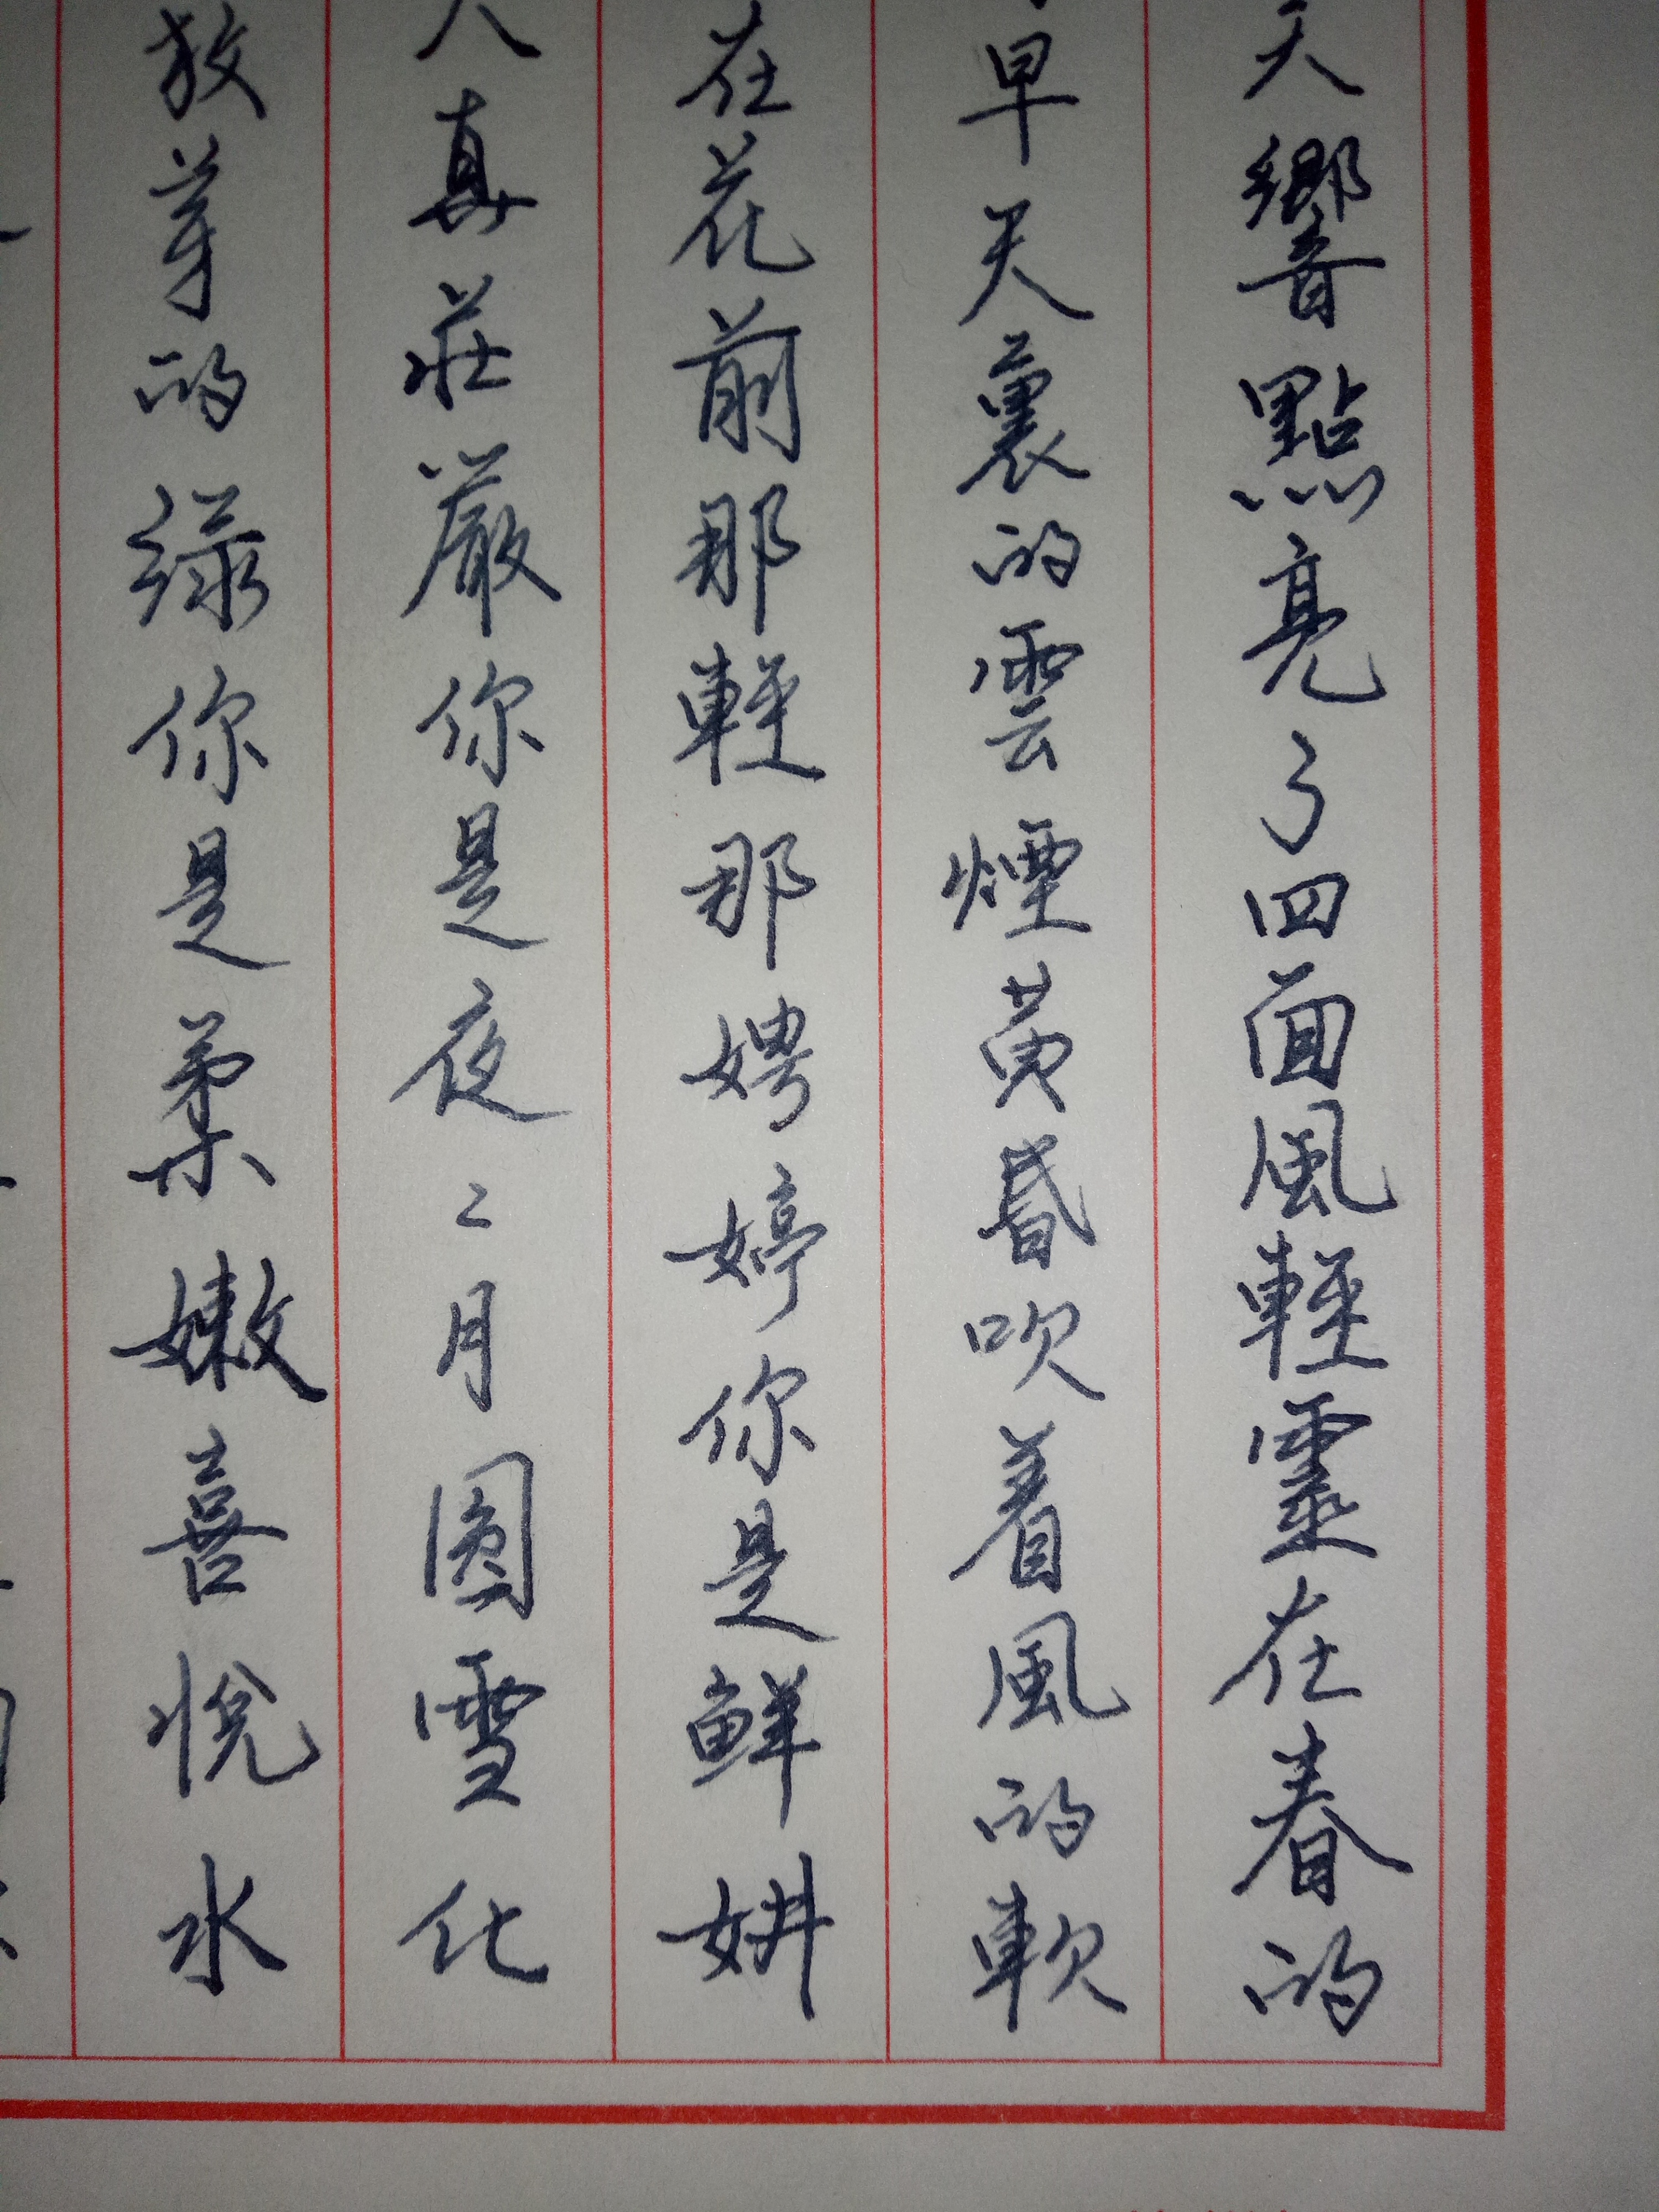 天響點亮了四面風輕靈在春的
早天裏的雲煙黄昏吹着風的軟
在花前那輕那娉婷你是鮮妍
人真莊嚴你是夜〻月圓雪化
放芽的緑你是柔嫩喜悅水